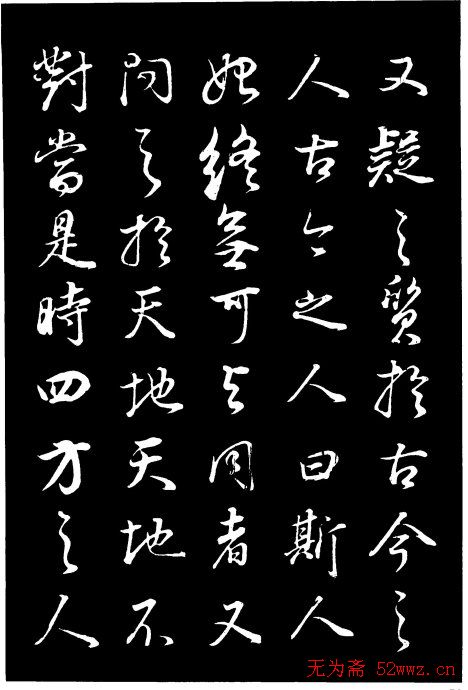 又疑之質於古今之
人古今之人曰斯人
始終無可与同者又
問之於天地天地不
對當是時四方之人
无为斋 52wwz.cn